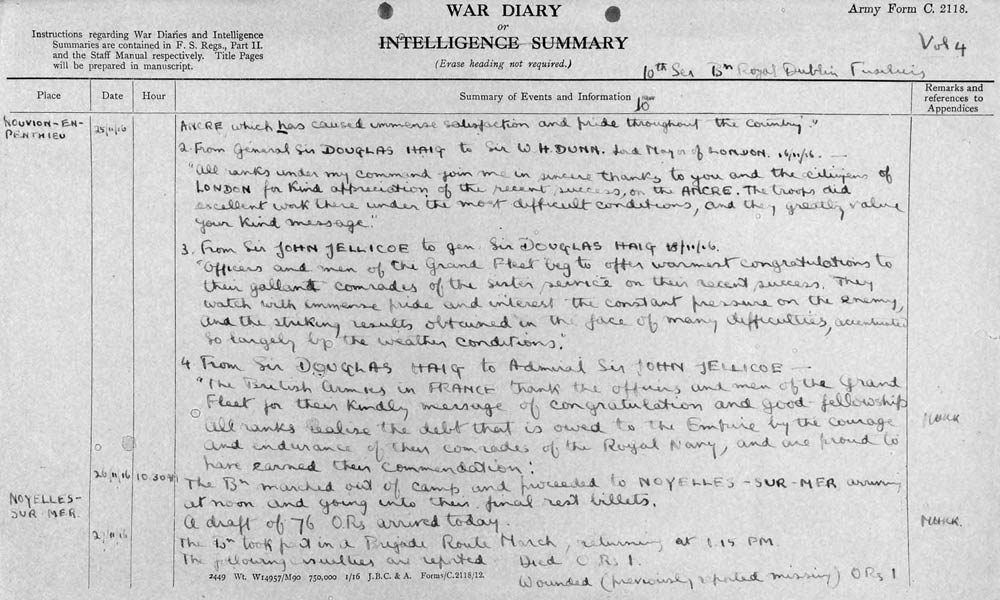 WAR DIARY
or
INTELLIGENCE SUMMARY
(Erase heading not required.)
Army Form C. 2118.
Instructions regarding War Diaries and Intelligence
Summaries are contained in F. S. Regs., Part II.
and the Staff Manual respectively. Title Pages
will be prepared in manuscript.
Vol 4
10th Ser Bn Royal Dublin Fusiliers
Place
Date
Hour
Summary of Events and Information
10
Remarks and
references to
Appendices
NOUVION-EN-
PENTHIEU
25/11/16
ANCRE which has caused immense satisfaction and pride throughout the country."
2. From General Sir DOUGLAS HAIG to Sir W.H. DUNN. Lord Mayor of LONDON. 16/11/16. —
"All ranks under my command join me in sincere thanks to you and the citizens of
LONDON for kind appreciation of the recent success, on the ANCRE. The troops did
excellent work there under the most difficult conditions, and they greatly value
your kind message."
3. From Sir JOHN JELLICOE to gen. Sir DOUGLAS HAIG 18/11/16.
"Officers and men of the Grand Fleet beg to offer warmest congratulations to
their gallant comrades of the sister service on their recent success. They
watch with immense pride and interest the constant pressure on the enemy,
and the striking results obtained in the face of many difficulties, accentuated
so largely by the weather conditions."
4. From Sir DOUGLAS HAIG to Admiral Sir JOHN JELLICOE —
"The British Armies in FRANCE thank the officers and men of the Grand
Fleet for their kindly message of congratulation and good-fellowship
All ranks realise the debt that is owed to the Empire by the courage
and endurance of their comrades of the Royal Navy, and are proud to
have earned their commendation."
26/11/16 10.30 AM The Bn marched out of camp and proceeded to NOYELLES-SUR-MER arriving
NOYELLES-
SUR MER.
at noon and going into their final rest billets.
A draft of 76 ORs arrived today.
27/11/16
The Bn took part in a Brigade Route March, returning at 1.15 PM.
The following casualties are reported Died ORs 1.
Wounded (previously reported missing) ORs 1
2449 Wt. W14957/M90 750,000 1/16 J.B.C. & A. Forms/C.2118/12.